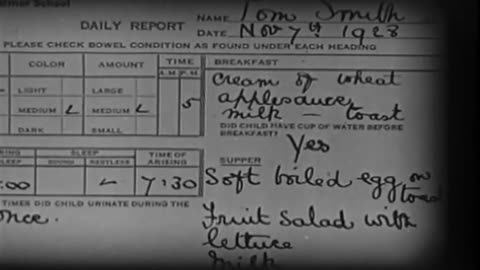 School
DAILY REPORT
NAME Tom Smith
DATE Nov 7th 1928
PLEASE CHECK BOWEL CONDITION AS FOUND UNDER EACH HEADING
COLOR AMOUNT TIME BREAKFAST
A.M. P.M.
LIGHT LARGE 5 Cream of wheat
MEDIUM MEDIUM applesauce
milk — toast
DARK SMALL DID CHILD HAVE CUP OF WATER BEFORE
BREAKFAST?
Yes
SLEEP TIME OF
SOUND RESTLESS ARISING
SUPPER
:00 7:30 Soft boiled egg on
toast
TIMES DID CHILD URINATE DURING THE
once. Fruit Salad with
lettuce
Milk